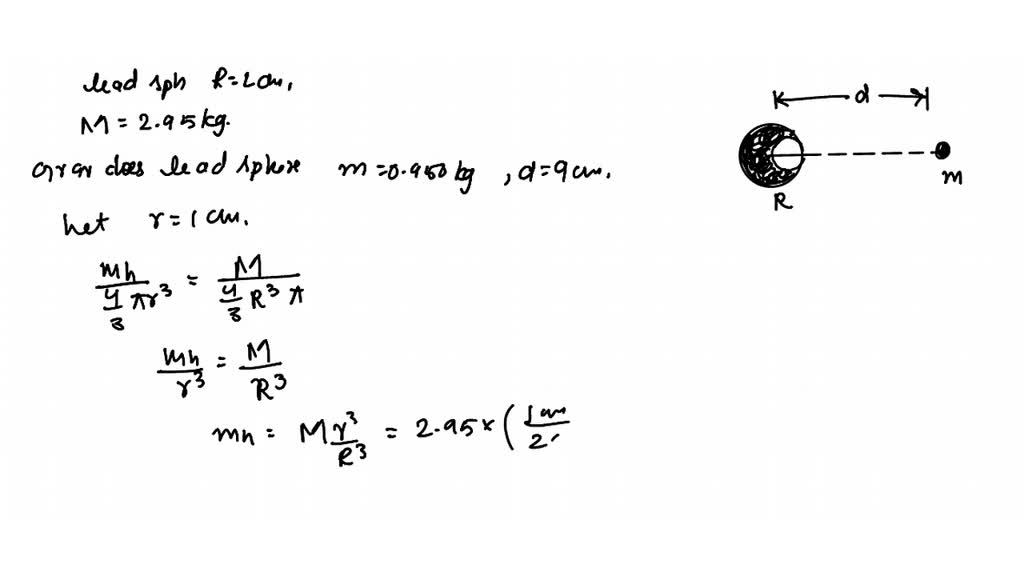 lead sph R=2cm,
M = 2.95kg.
does lead sphere m=0.950kg, d=9cm.
Let r=1cm.
mh/(4/3 πr³) = M/(4/3 R³ π)
mh/r³ = M/R³
mh = M r³/R³ = 2.95 × (1cm/2
d
R
m